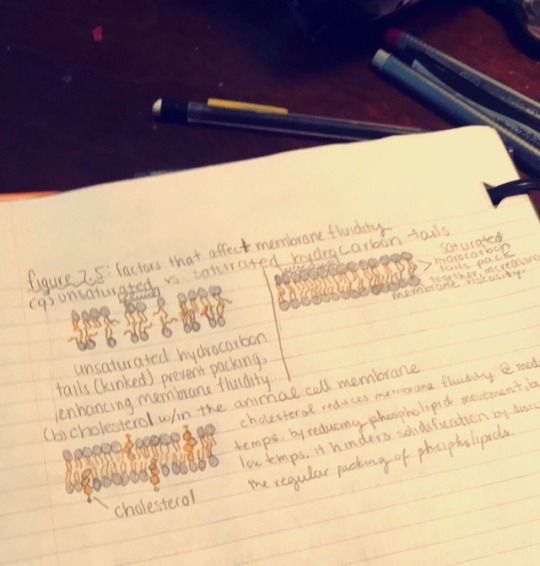 figure 7.5: factors that affect membrane fluidity
(a) unsaturated vs. saturated hydrocarbon tails
saturated
hydrocarbon
tails pack
together, increasing
membrane viscosity.
unsaturated hydrocarbon
tails (kinked) prevent packing,
enhancing membrane fluidity
(b) cholesterol w/in the animal cell membrane
cholesterol reduces membrane fluidity @ mod
temps. by reducing phospholipid movement,
low temps. it hinders solidification by
the regular packing of phospholipids.
cholesterol